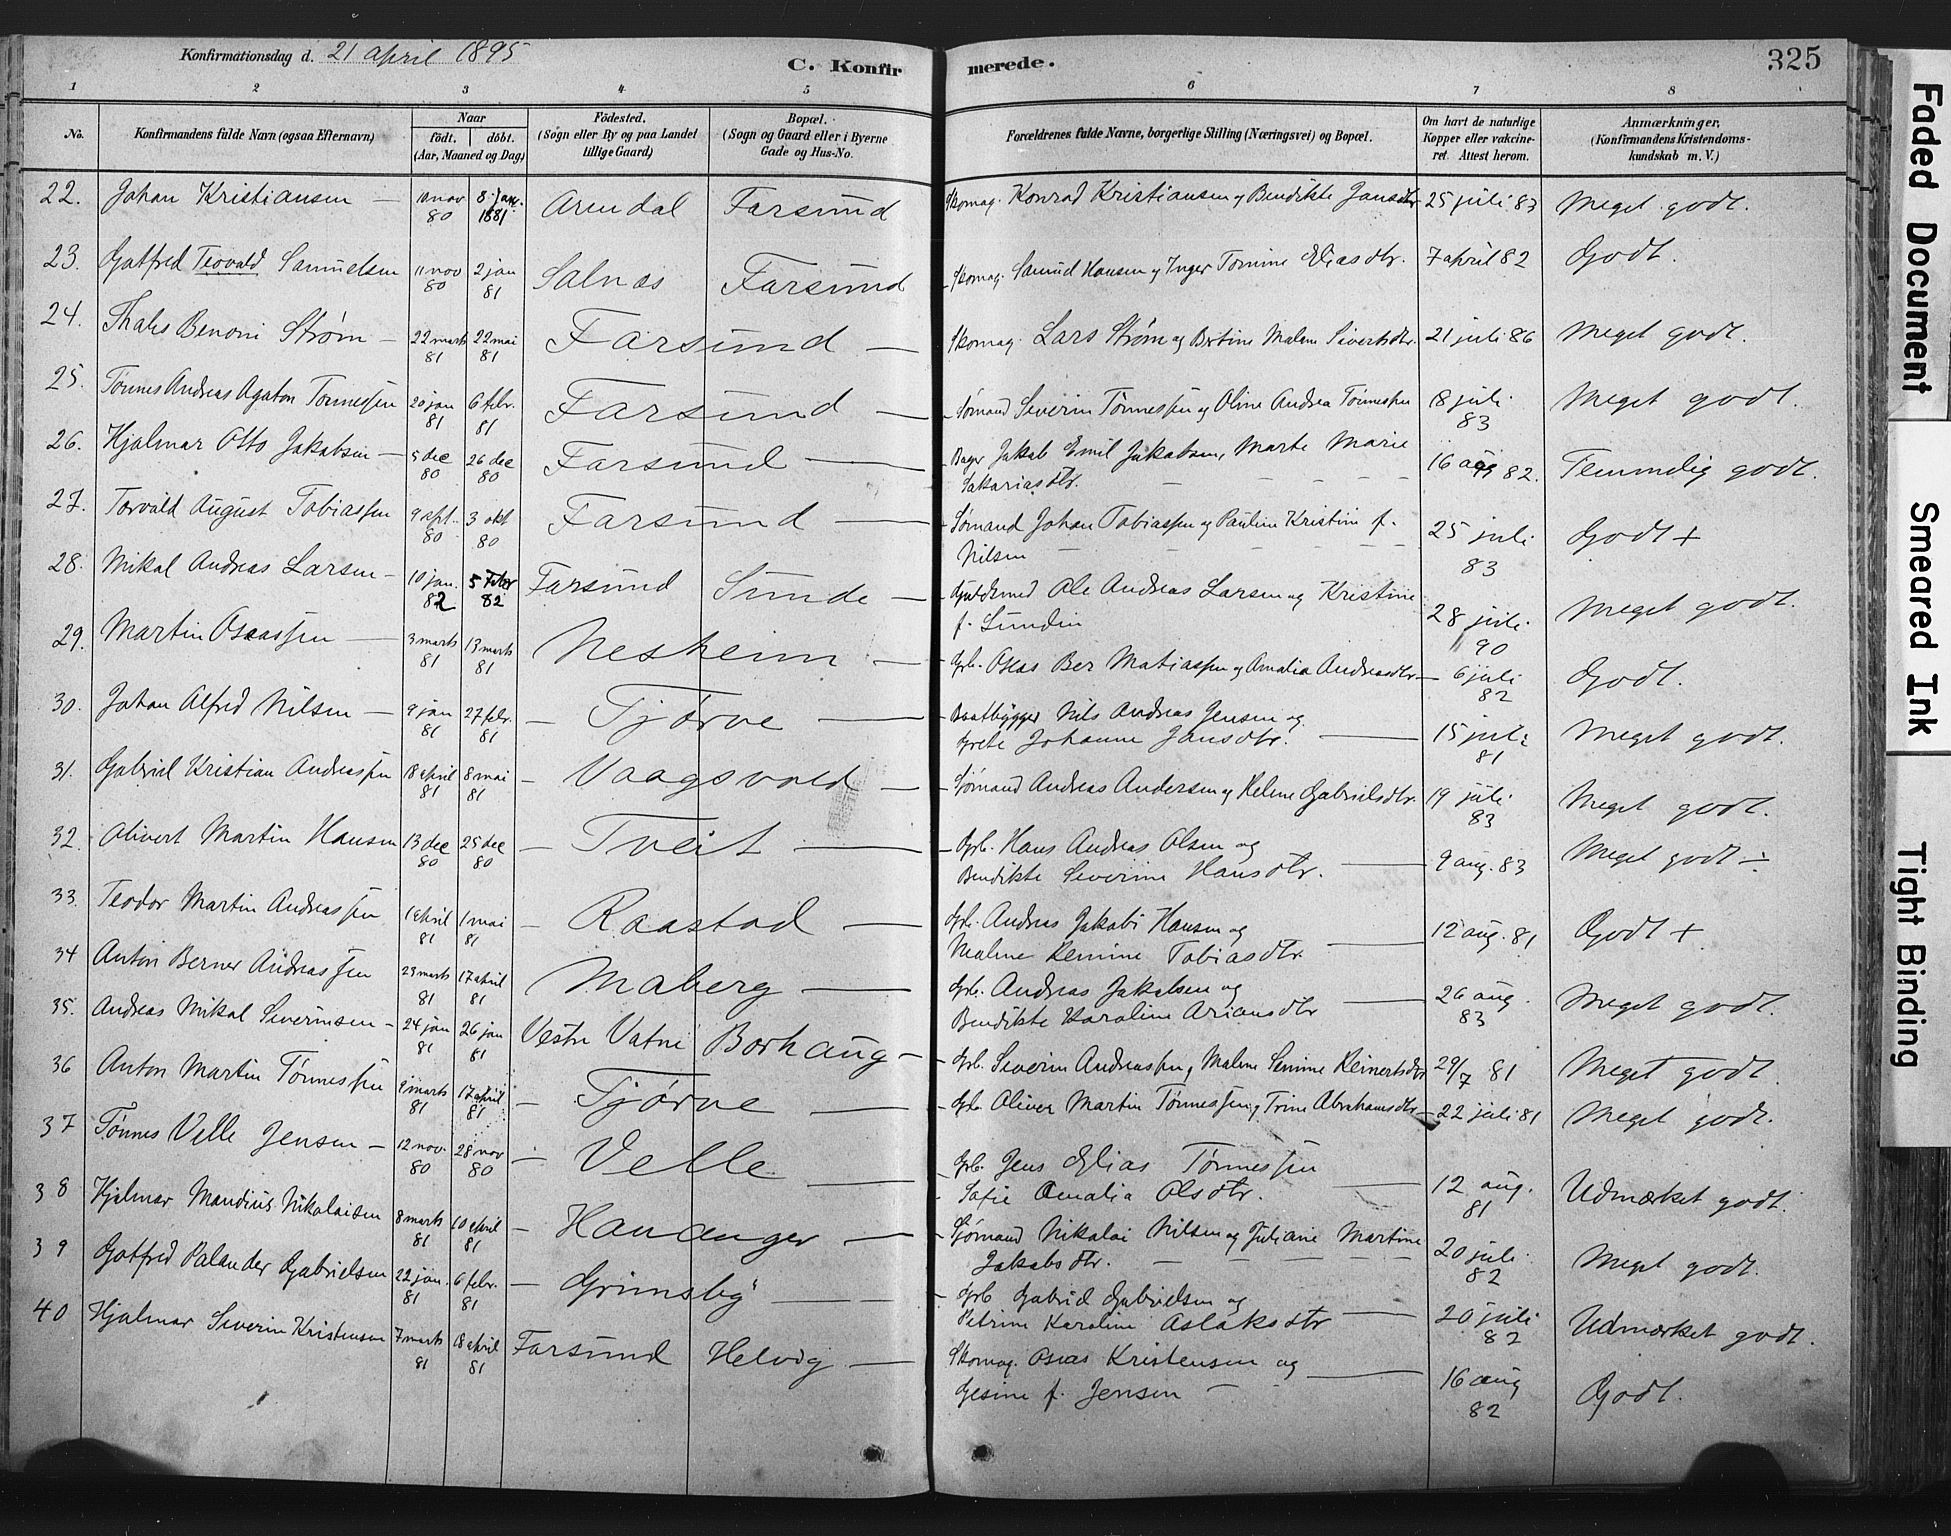 Konfirmationsdag d. 21 april 1895
C. Konfirmerede.
325
1 2 3 4 5 6 7 8
No. Konfirmandens fulde Navn (ogsaa Efternavn) Naar födt. döbt. (Aar, Maaned og Dag) Födested. (Sogn eller By og paa Landet tillige Gaard) Bopæl. (Sogn og Gaard eller i Byerne Gade og Hus-No. Forældrenes fulde Navne, borgerlige Stilling (Næringsvei) og Bopæl. Om havt de naturlige Kopper eller vakcineret. Attest herom. Anmærkninger, (Konfirmandens Kristendomskundskab m. V.)
22. Johan Kristiansen — 10 nov 80 8 jan. 1881 Arendal Farsund Skomag. Konrad Kristiansen og Bendikte Jansdtr 25 juli 83 Meget godt.
23. Gotfred Teovald Samuelsen 11 nov 80 2 jan 81 Salnes Farsund Skomag. Samuel Hansen og Inger Tomine Eliasdtr. 7 april 82 Godt.
24. Thales Benoni Strøm — 22 marts 81 22 mai 81 Farsund — Skomag. Lars Strøm og Bertine Malene Sivertsdtr. 21 juli 86 Meget godt.
25. Tønnes Andreas Agaton Tønnessen 20 jan 81 6 febr. 81 Farsund — Sømand Severin Tønnessen og Oline Andrea Tønnessen 18 juli 83 Meget godt.
26. Hjalmar Otto Jakobsen — 5 dec 80 26 dec 80 Farsund — Bager Jakob Emil Jakobsen, Marte Marie Sakariasdtr. 16 aug 82. Temmelig godt.
27. Torvald August Tobiassen 9 spt. 80 3 okt 80 Farsund — Sømand Johan Tobiassen og Pauline Kristine f. Nilsen 25 juli 83 Godt +
28. Mikal Andreas Larsen — 10 jan. 82 5 Febr 82 Farsund Sunde — Guldsmed Ole Andreas Larsen og Kristine f. Lundin 28 juli 90 Meget godt.
29. Martin Oseassen — 3 marts 81 13 marts 81 Nesheim — Grb. Oseas Ber Matiassen og Amalia Andreasdtr — 6 juli 82 Godt.
30. Johan Alfred Nilsen — 9 jan 81 27 febr. 81 — Tjørve — Baatbygger Nils Andreas Jensen og Grete Johanne Jansdtr. — 15 juli 81 Meget godt.
31. Gabriel Kristian Andreassen 18 april 81 8 mai 81 — Vaagsvold — Sjømand Andreas Andersen og Helene Gabrielsdtr. 19 juli 83 Meget godt.
32. Olivert Martin Hansen 13 dec 80 25 dec 80 — Tveit — Grb. Hans Andreas Olsen og Bendikte Severine Hansdtr. — 9 aug. 83 Meget godt ÷
33. Teodor Martin Andreassen 1 april 81 1 mai 81 — Raastad — Grb. Andreas Jakobi Hansen og Malene Remine Tobiasdtr — 12 aug. 81 Godt +
34 Anton Berner Andreassen 23 marts 81 17 april 81 Maberg — Grb. Andreas Jakobsen og Bendikte Karoline Ariansdtr — 26 aug. 83 Meget godt.
35. Andreas Mikal Severinsen — 24 jan 81 26 jan 81 Vestre Vatne Borhaug — Grb. Severin Andreassen og Malene Semine Reinertsdtr 29/7 81 Meget godt.
36 Anton Martin Tønnessen 9 marts 81 17 april 81 — Tjørve — Grb. Oliver Martin Tønnessen og Trine Abrahamsdtr — 22 juli 81 Meget godt.
37 Tønnes Velle Jensen — 12 nov. 80 28 nov 80 — Velle — Grb. Jens Elias Tønnessen Sofie Amalia Olsdtr. — 12 aug. 81 Udmærket godt.
38 Hjalmar Mandius Nikolaisen 8 marts 81 10 april 81 — Hananger — Sjømand Nikolai Nilsen og Juliane Martine Jakobsdtr. — 20 juli 82 Meget godt.
39 Gotfred Palander Gabrielsen 22 jan. 81 6 febr. 81 — Grimsby — Grb Gabriel Gabrielsen og Petrine Karoline Aslaksdtr — 20 juli 82 Udmærket godt.
40 Hjalmar Severin Kristensen 7 marts 81 18 april 81 Farsund Helvig — Skomag. Oseas Kristensen og Gesine f. Jensen — 16 aug 82 Godt.
Faded Document
Smeared Ink
Tight Binding